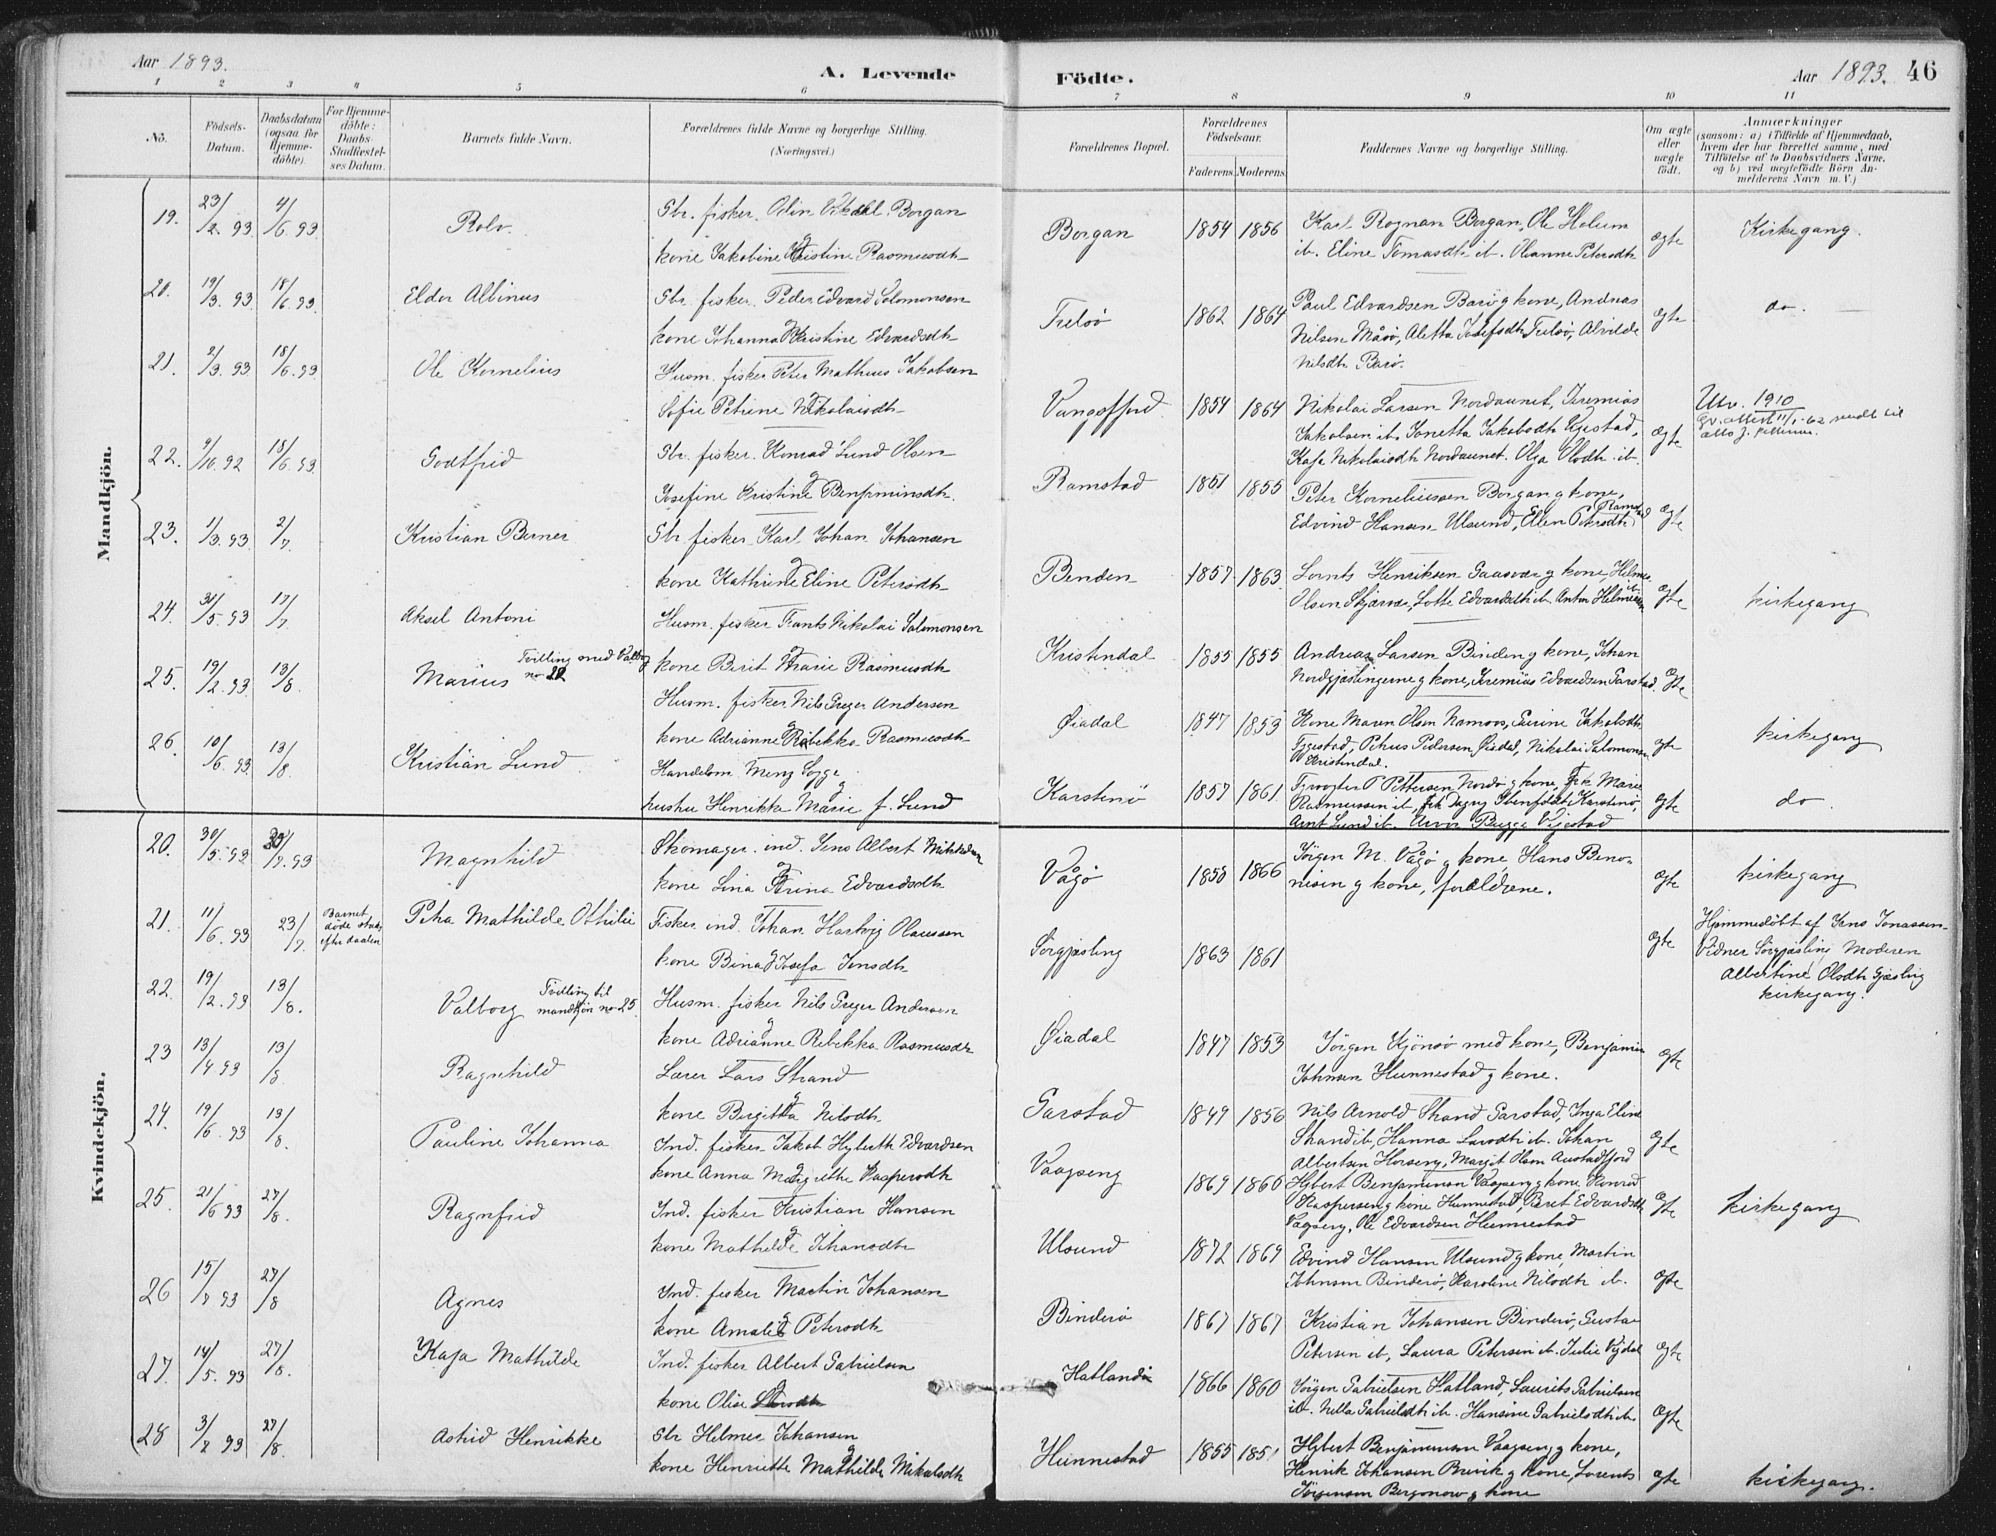 Aar 1893.
A. Levende
Födte.
Aar 1893. 46
1 2 3 4 5 6 7 8 9 10 11
No.
Födsels-
Datum.
Daabsdatum
(ogsaa for
Hjemme-
döbte).
For Hjemme-
döbte:
Daabs-
Stadfæstel-
ses Datum.
Barnets fulde Navn.
Forældrenes fulde Navne og borgerlige Stilling.
(Næringsvei.)
Forældrenes Bopæl.
Forældrenes
Födselsaar.
Faderens. Moderens.
Faddernes Navne og borgerlige Stilling.
Om ægte
eller
uægte
födt.
Anmærkninger
(saasom: a) i Tilfælde af Hjemmedaab,
hvem der har forrettet samme, med
Tilföielse af to Daabsvidners Navne,
og b) ved uægtefödte Börn An-
melderens Navn m. V.)
Mandkjön.
19. 23/2 93 4/6 93 Rolv.
Gbr. fisker Odin Borgan
kone Jakobine Kristine Rasmusdtr
Borgan 1854 1856
Karl Rognan Borgan, Ole Holum
ib. Eline Tomasdtr ib. Oleanne Petersdtr
ægte Kirkegang.
20. 19/3 93 18/6 93 Eldor Albinus
Gbr. fisker Peder Edvard Solomonsen
kone Johanna Kristine Edvardsdtr
Trelsö 1862 1864
Paul Edvardsen Barö g kone, Andreas
Nilsen Måsö, Aletta Josefsdtr Trelsö, Alvilde
Nilsdtr Barö.
ægte do.
21. 2/3 93 18/6 93 Ole Kornelius
Husm. fisker Peter Mathius Jakobsen
Sofie Petrine Nikolaisdtr
Vangsfjord 1854 1864
Nikolai Larsen Nordaunet, Jeremias
Jakobsen ib. Jonetta Jakobsdtr
Kaja Nikolaisdtr Nordaunet. Olga Olsdtr. ib.
ægte
Utv. 1910
22. 9/10 92 18/6 93 Godtfrid
Gbr. fisker Konrad Lund Olsen
Josefine Kristine Benjaminsdtr.
Ramstad 1851 1855
Peter Korneliussen Borgan g kone,
Edvind Hansen Ulsund, Ellen Petersdtr Ramstad
ægte
23. 1/3 93 2/7 Kristian Berner
Gbr fisker Karl Johan Johansen
kone Kathrine Eline Petersdtr
Benden 1857 1863
Lornts Henriksen Gaasvær g kone, Helmer
Olsen Skjærvæ, Lotte Edvardsdtr ib. Anton Helmersen ib.
ægte kirkegang
24. 31/5 93 17/7 Aksel Antoni
Husm. fisker Frants Nikolai Salomonsen
kone Berit Marie Rasmusdtr
Kristendal 1855 1855
Andreas Larsen Binden g kone, Johan
Nordgjæslingerne g kone, Jeremias Edvardsen Garstad
ægte
25. 19/2 93 13/8 Marius Tvilling med Valborg no 22
Husm. fisker Nils Greger Andersen
kone Adrianne Rebekka Rasmusdtr
Øiadal 1847 1853
Kone Maren Olsen Namsos, Jakobsdtr
Petrus Pedersen Øiadal, Nikolai Salomonsen
Kristendal.
ægte kirkegang
26. 10/6 93 13/8 Kristian Lund
Handelsm Menz
hustru Henrikka Marie f. Lund
Karstenö 1857 1861
P Pettersen Nordö g kone, frk Marie
Rasmussen ib, frk Dagny Karstenö,
Arnt Lund ib. Bugge
ægte do.
Kvindekjön.
20. 30/5 93 30/7 93 Magnhild
Skomager ind. Jens Albert
kone Lina Edvardsdtr
Vågö 1858 1866
Jörgen M. Vågö g kone Hans Beno-
nisen g kone, forældrene.
ægte kirkegang
21. 11/6 93 23/7 Barnet döde strax efter daaben
Petra Mathilde Othilie
Fisker ind. Johan Hartvig Olaussen
kone Bina Josefa Jensdtr
Sörgjæsling 1863 1861
ægte
Hjemmedöbt af Jens Jonassen
Vidner Sörgjæsling Moderen
Albertine Olsdtr Gjæsling
kirkegang.
22. 19/2 93 13/8. Valborg Tvilling til mandkjön no 25.
Husm. fisker Nils Greger Andersen
kone Adrianne Rebekka Rasmusdtr
Øiadal 1847 1853
Jörgen Kjönsö med kone, Benjamin
Johnsen Hunnestad g kone.
ægte
23 13/4 93 13/8 Ragnhild
Lærer Lars Strand
kone Birgitta Nilsdtr
Garstad 1849 1856
Nils Arnold Strand Garstad, Inga Eline
Strand ib, Hanna Larsdtr ib. Johan
Albertsen Horseng, Margit Olsen Austadfjord
ægte
24. 19/6 93 13/8. Pauline Johanna
Ind. fisker Jakob Hybertt Edvardsen
kone Anna Margrethe Kaspersdtr
Vaagseng 1869 1860
Hybert Benjaminsen Vaagseng g kone, Konrad
Kaspersen g kone Hunnestad, Beret Edvardsdtr
Vagseng, Ole Edvardsen Hunnestad
ægte kirkegang
25. 21/6 93 27/8. Ragnfrid
Ind. fisker Kristian Hansen
kone Mathilde Johansdtr
Ulsund 1872 1869
Edvind Hansen Ulsund g kone, Martin
Johnsen Binderö, Karoline Nilsdtr ib.
ægte
26 15/7 93 27/8 Agnes
Ind. fisker Martin Johansen
kone Amalie Petersdtr
Binderö 1867 1867
Kristian Johansen Binderö, Gustav
Petersen ib, Laura Petersen ib. Julie
ægte
27. 14/5. 93 27/8. Kaja Mathilde
Ind. fisker Albert Gabrielsen
kone Olise
Hatland 1866 1860
Jörgen Gabrielsen Hatland, Laurits Gabrielsen
ib. Nella Gabrielsdtr ib. Hansine Gabrielsdtr ib.
ægte
28 3/2 93 27/8. Astrid Henrikke
Gbr Helmer Johansen
kone Henriette Mathilde Mikalsdtr
Hunnestad 1855 1851
Hybert Benjaminsen Vaagseng g kone,
Henrik Johansen Brevik g kone, Lorents
Jörgensen g kone
ægte kirkegang.